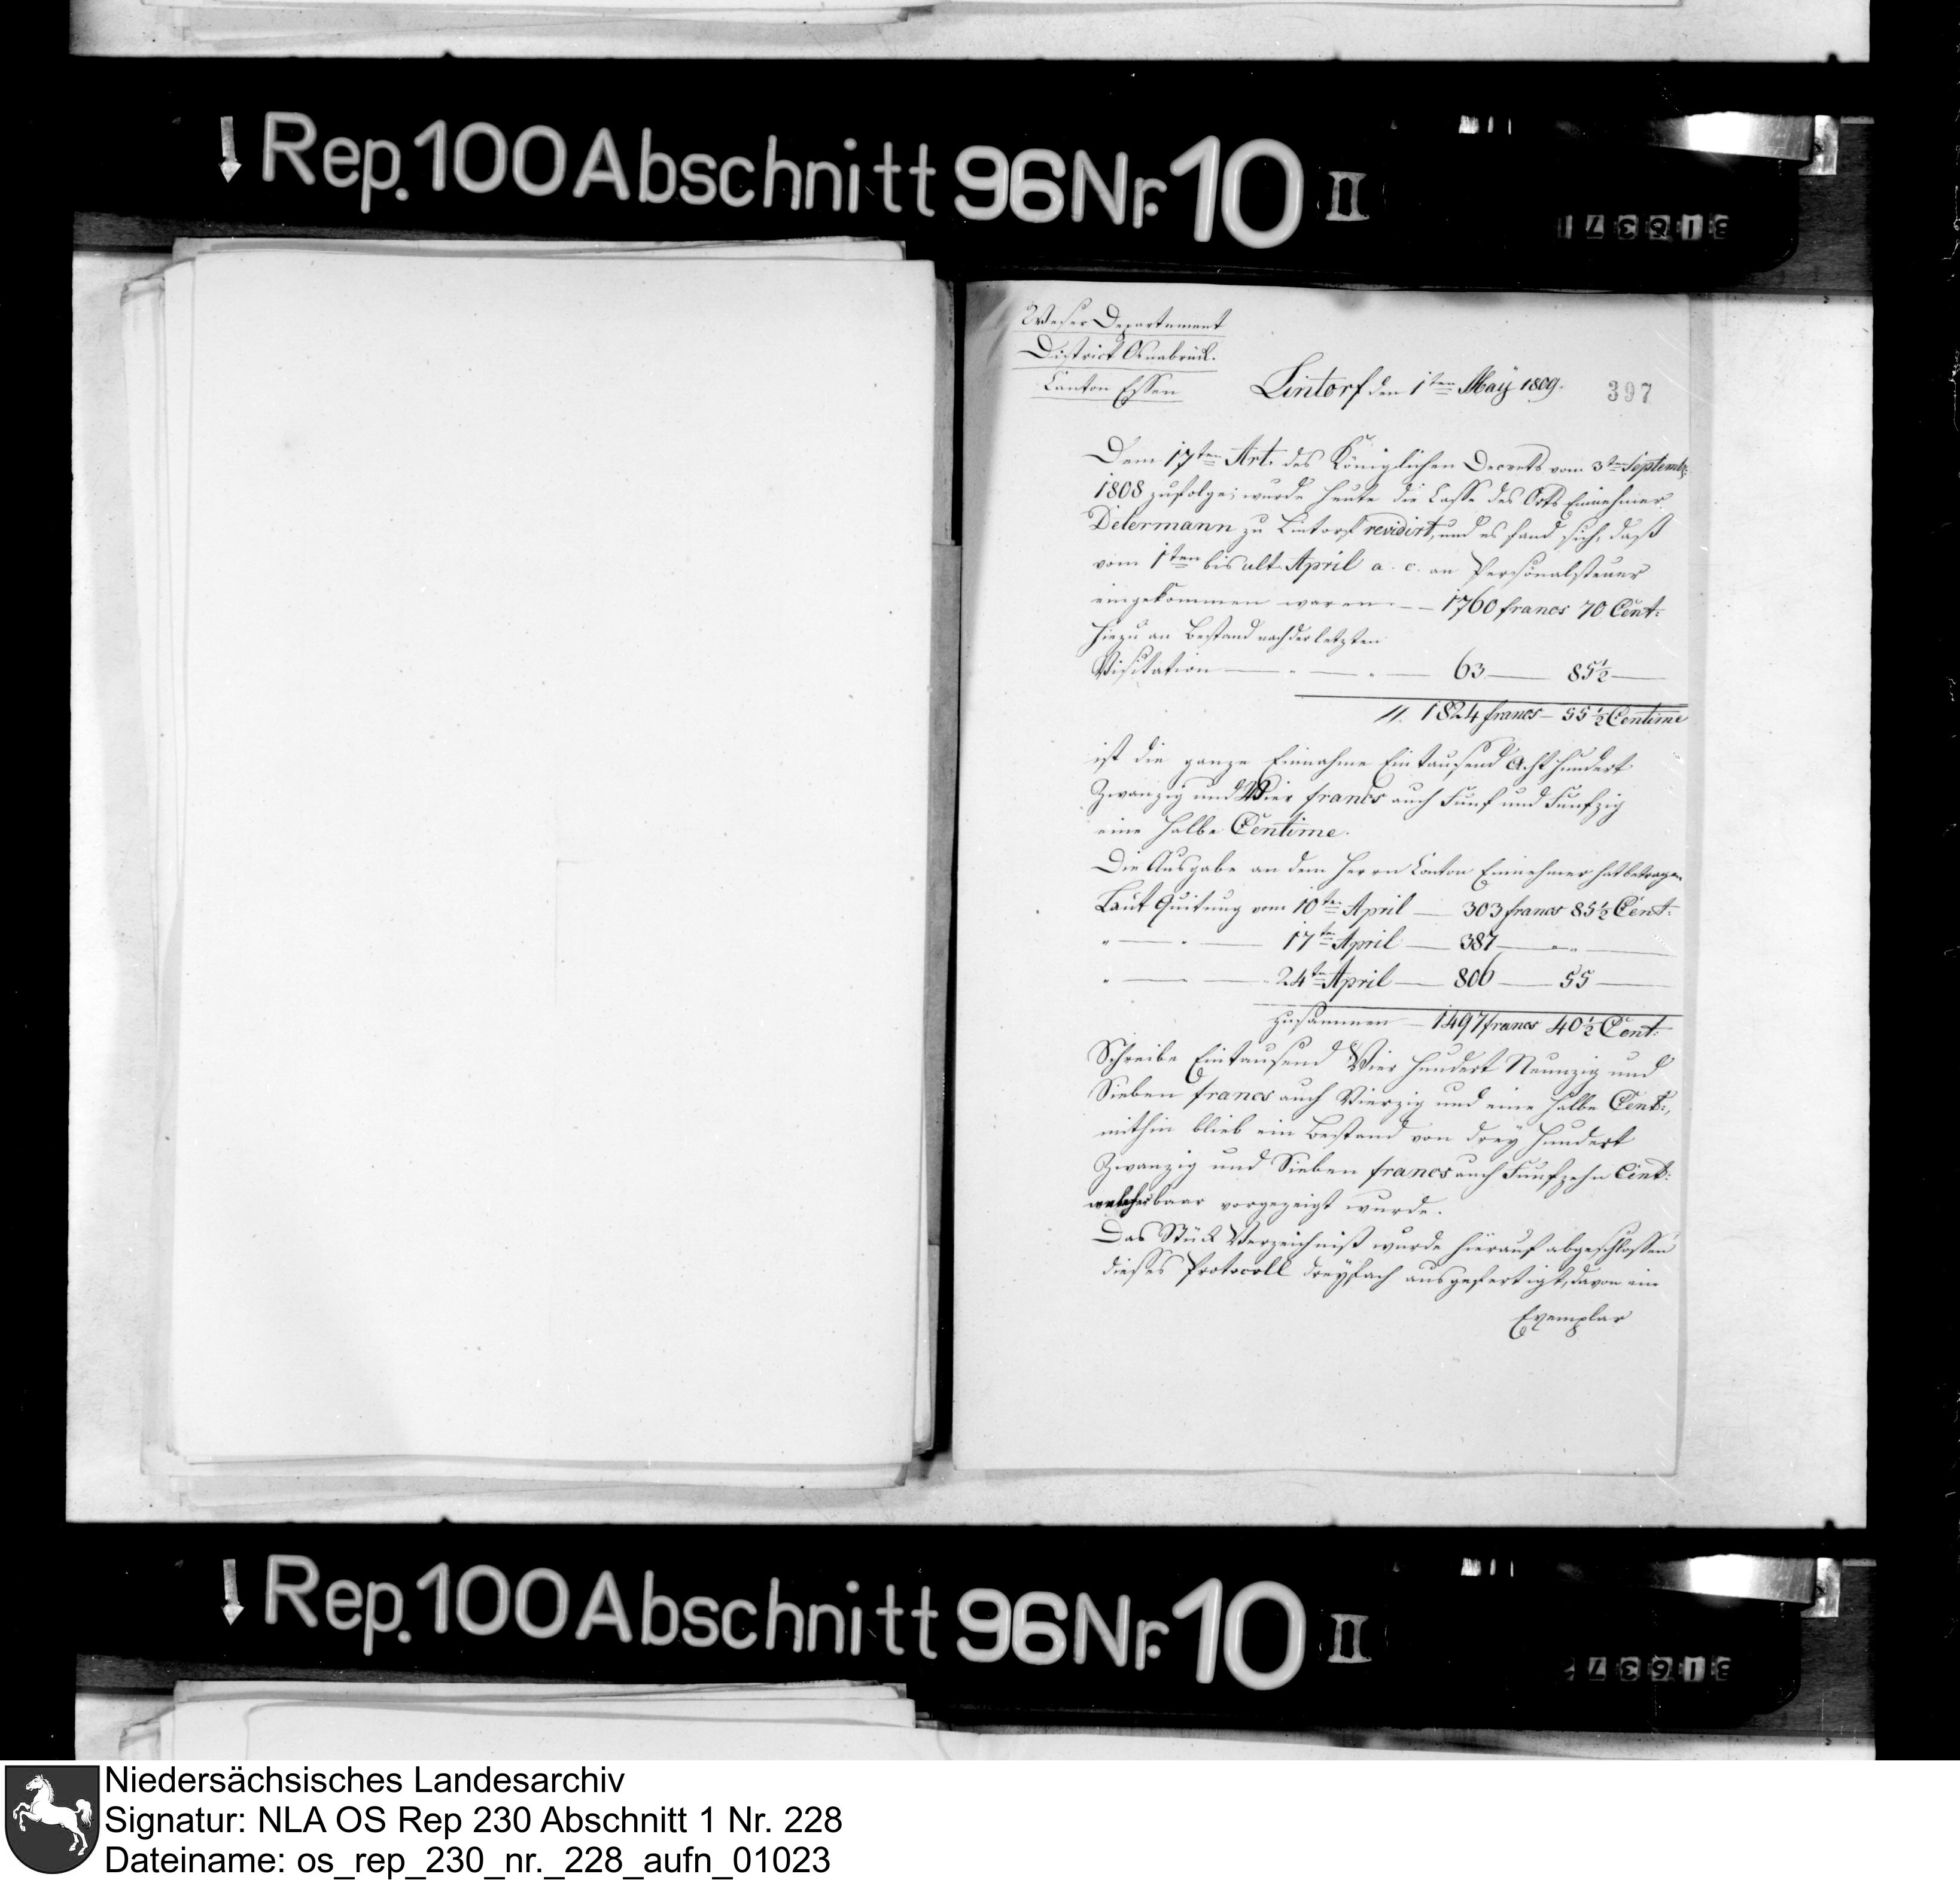 Rep. 100 Abschnitt 96 Nr. 10 II
Weser Departement
District Osnabrück.
Canton Essen
Lintorf den 1ten May 1809.
397
Dem 17ten Art. des Königlichen Decrets vom 3ten Septembr:
1808 zufolge; wurde heute die Casse des Orts Einnehmer
Determann zu Lintorf revidirt, und es fand sich, daß
vom 1ten bis ult. April a. c. an Personalsteuer
eingekommen waren — 1760 francs 70 Cent:
hiezu an Bestand nach der letzten
Visitation — " — " — 63 — 85½ —
11. 1824 francs — 55½ Centime
ist die ganze Einnahme Eintausend Acht hundert
Zwanzig und Vier francs auch Funf und Funfzig
eine halbe Centime.
Die Ausgabe an dem Herrn Canton Einnehmer hat betragen
Laut Quitung vom 10ten April — 303 francs 85½ Cent:
" — " — 17ten April — 387 — " —
" — — 24ten April — 806 — 55 —
zusammen — 1497 francs 40½ Cent:
Schreibe Eintausend Vier hundert Neunzig und
Sieben francs auch Vierzig und eine halbe Cent:,
mithin blieb ein Bestand von drey hundert
Zwanzig und Sieben francs auch Funfzehn Cent:
welcher baar vorgezeigt wurde.
Das Stük Verzeichniß wurde hierauf abgeschlossen
dieses Protocoll dreyfach ausgefertigt, davon ein
Exemplar
Rep. 100 Abschnitt 96 Nr. 10 II
Niedersächsisches Landesarchiv
Signatur: NLA OS Rep 230 Abschnitt 1 Nr. 228
Dateiname: os_rep_230_nr._228_aufn_01023